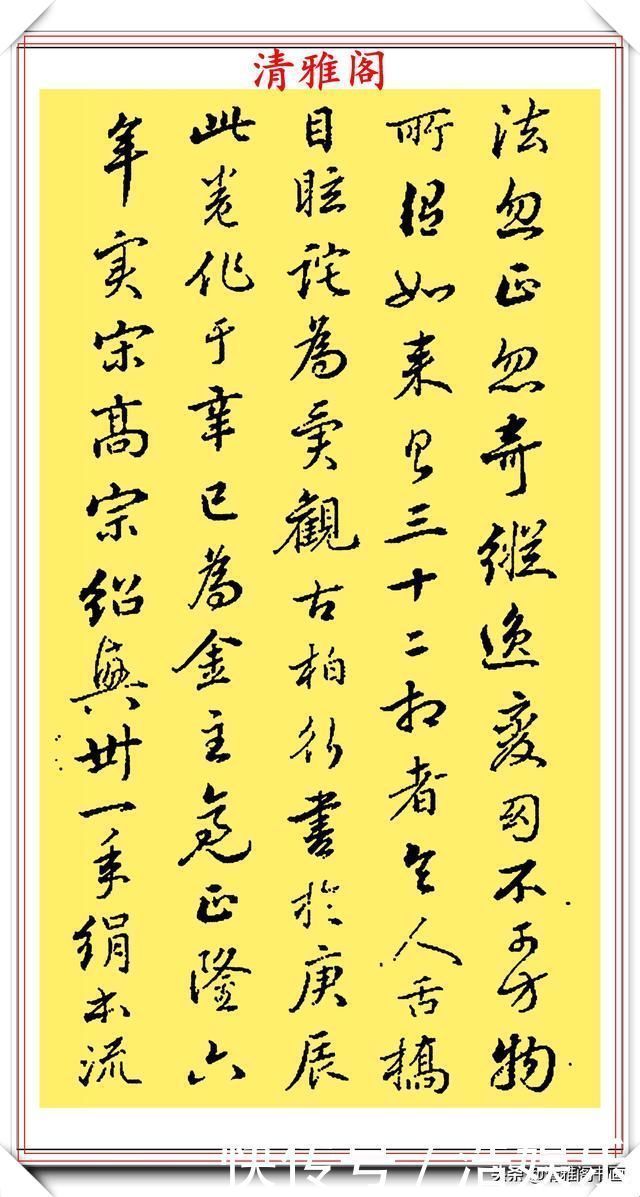 清雅阁
法忽正忽奇縱逸變幻不可方物
所謂如来具三十二相者令人舌撟
目眩詫為異觀古柏行書於庚辰
此卷作于辛巳為金主亮正隆六
年实宋高宗紹興卅一年絹本流
快传号 /
头条 @清雅阁书画